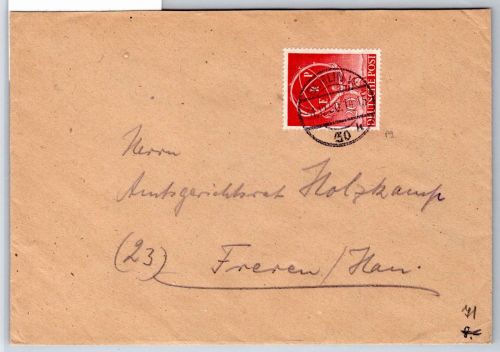 ERP
DEUTSCHE POST
Herrn
Amtsgerichtsrat Holzkamp
(23) Freren/Han.